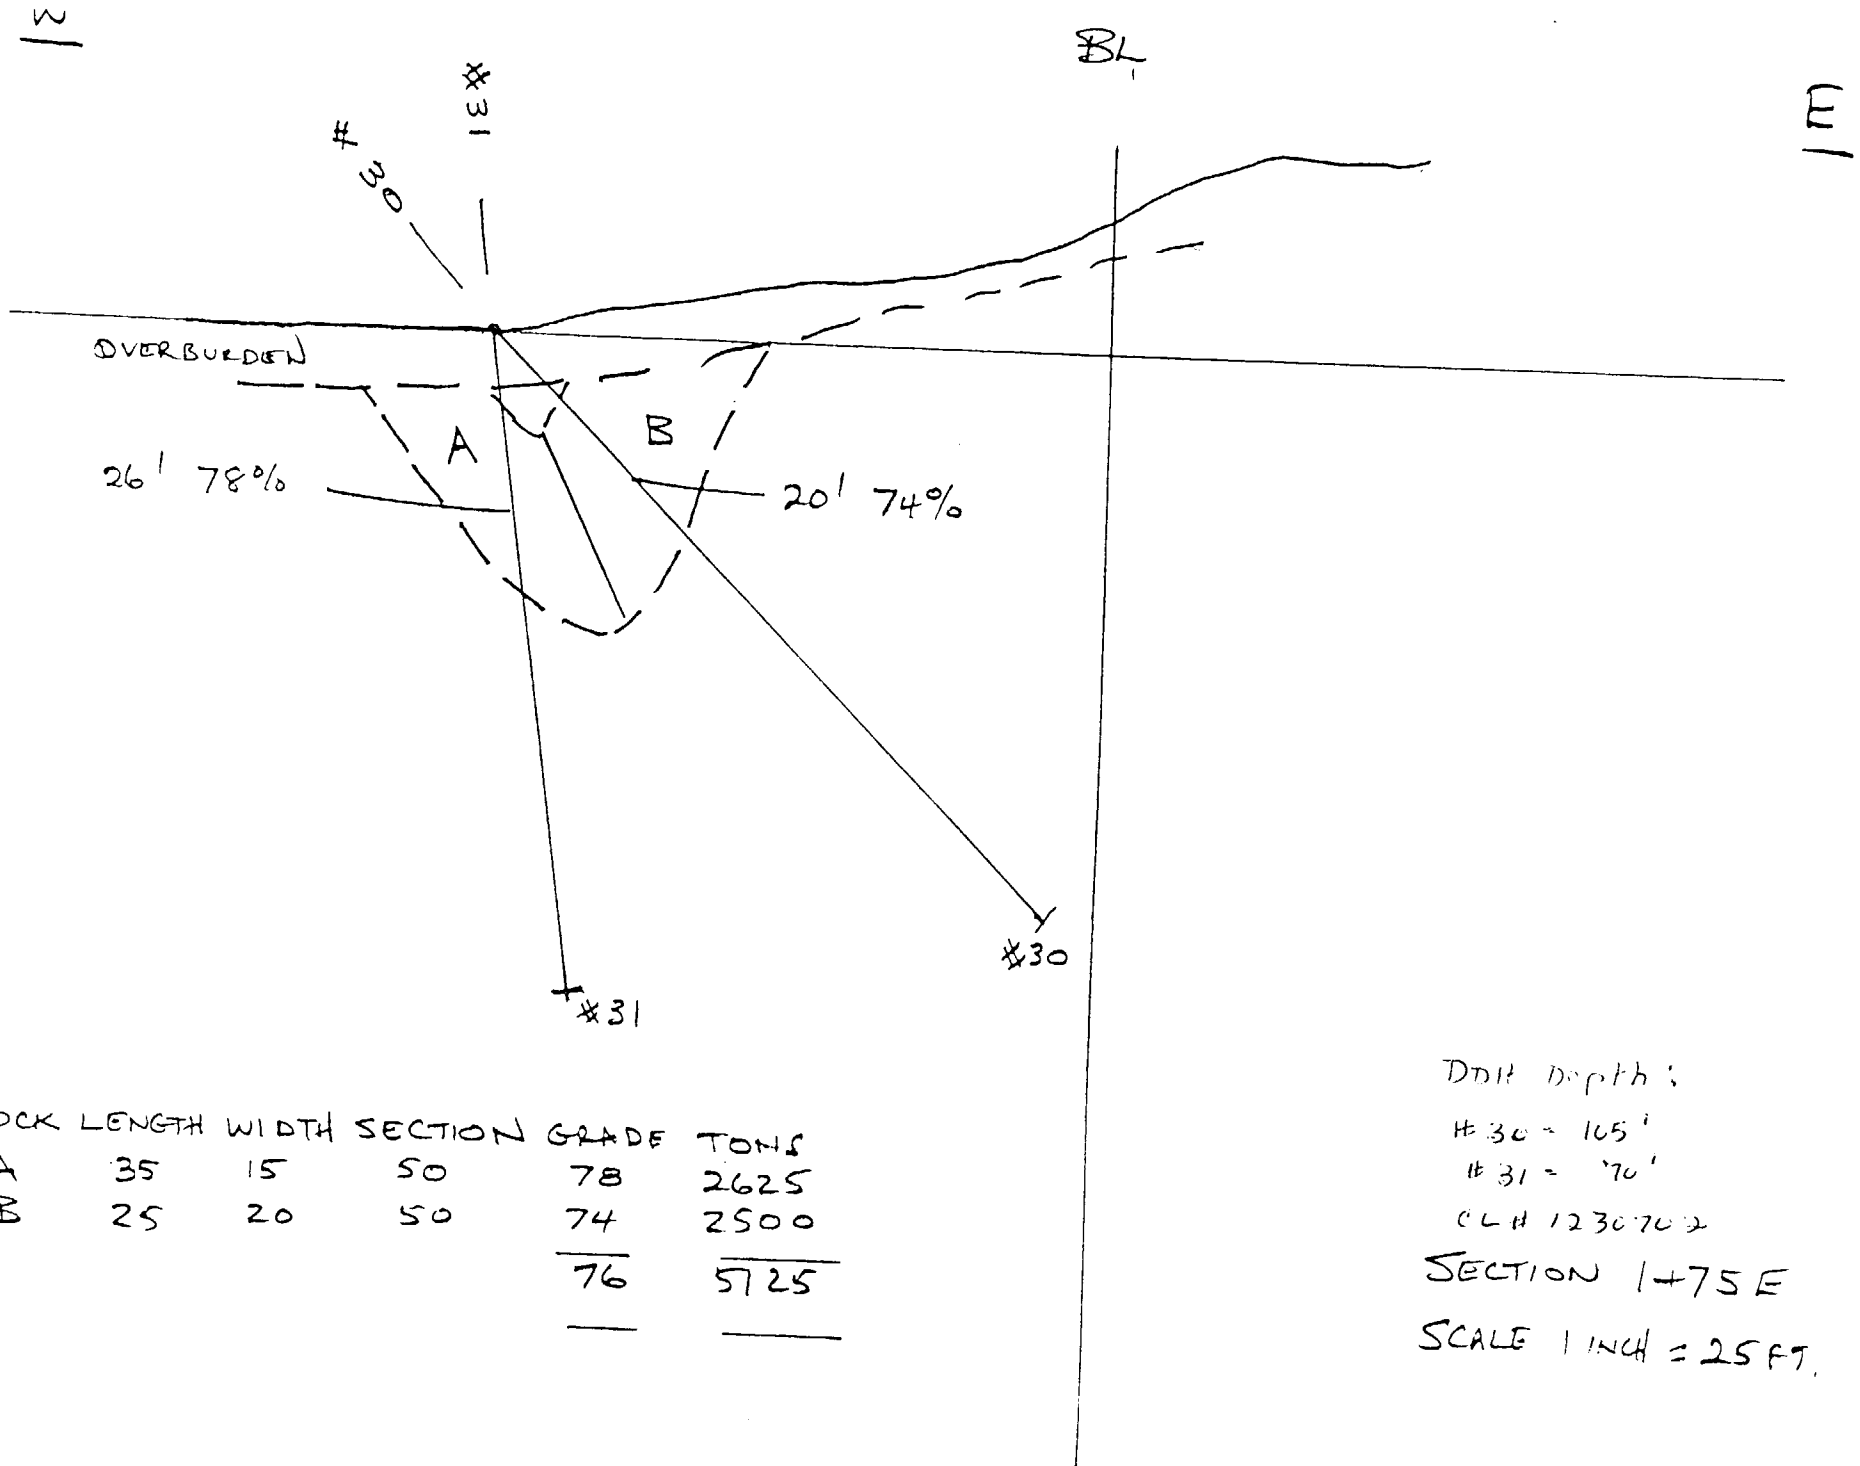 W
BL
E
#31
#30
OVERBURDEN
A
B
26' 78%
20' 74%
#30
#31
OCK LENGTH WIDTH SECTION GRADE TONS
A 35 15 50 78 2625
B 25 20 50 74 2500
76 5125
DDH Depth:
#30 = 105'
#31 = 70'
CL# 1230702
SECTION 1+75E
SCALE 1 INCH = 25 FT.